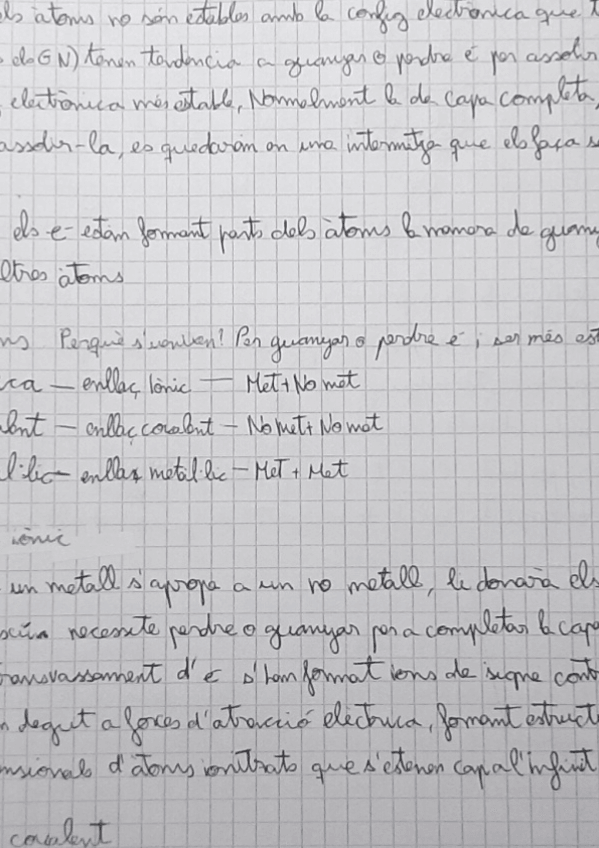 ls àtoms no són estables amb la config electrònica que t
els GN) tenen tendència a guanyar o perdre e- per assolir
electrònica més estable, Normalment la de capa completa,
assolir-la, es quedaran en una intermitja que els faça
els e- estàn formant parts dels àtoms la manera de guany
ltres àtoms
ns Perquè s'uneixen? Per guanyar o perdre e- i ser més est
ca — enllaç iònic — Met + No met
lent — enllaç covalent — No met + No met
l·lic — enllaç metal·lic — Met + Met
iònic
un metall s'apropa a un no metall, li donarà els
necessite perdre o guanyar per a completar la capa
ransvassament d'e- s'han format ions de signe cont
degut a forces d'atracció elèctrica, formant estruct
nsionals d'àtoms ionitzats que s'estenen cap al infinit
covalent